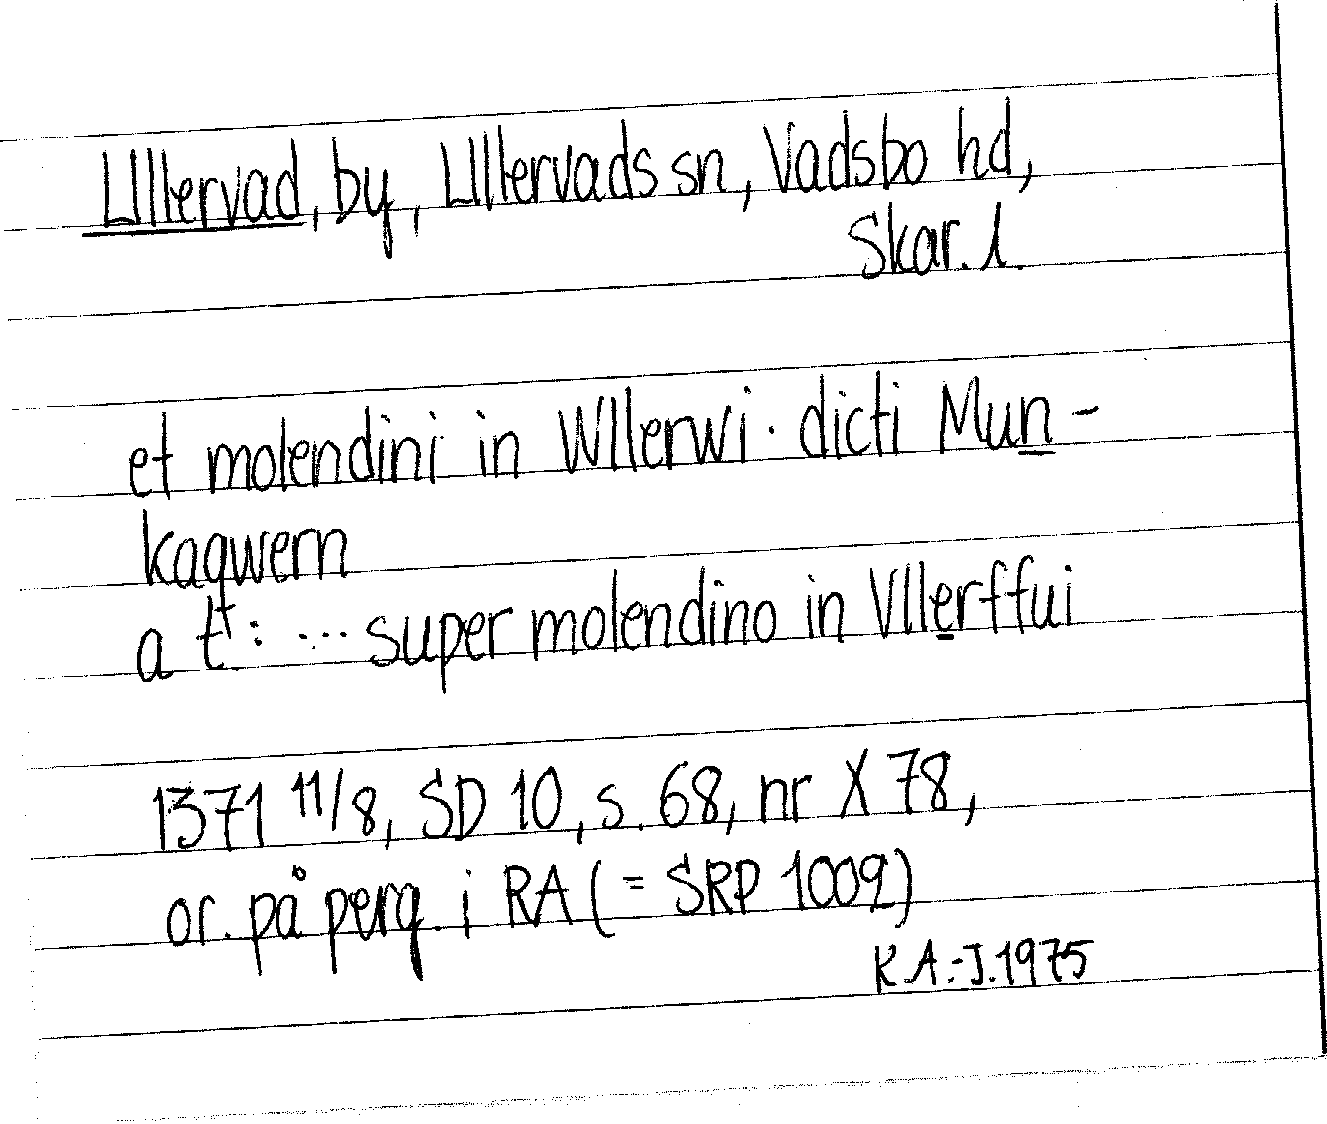 Ullervad, by, Ullervads sn, Vadsbo hd,
Skar. l.
et molendini in Wllerwi · dicti Mun-
kaqwern
a t⁺: ... super molendino in Vllerffui
1371 11/8, SD 10, s. 68, nr X 78,
or. på perg. i RA (= SRP 1009)
K.A.-J. 1975